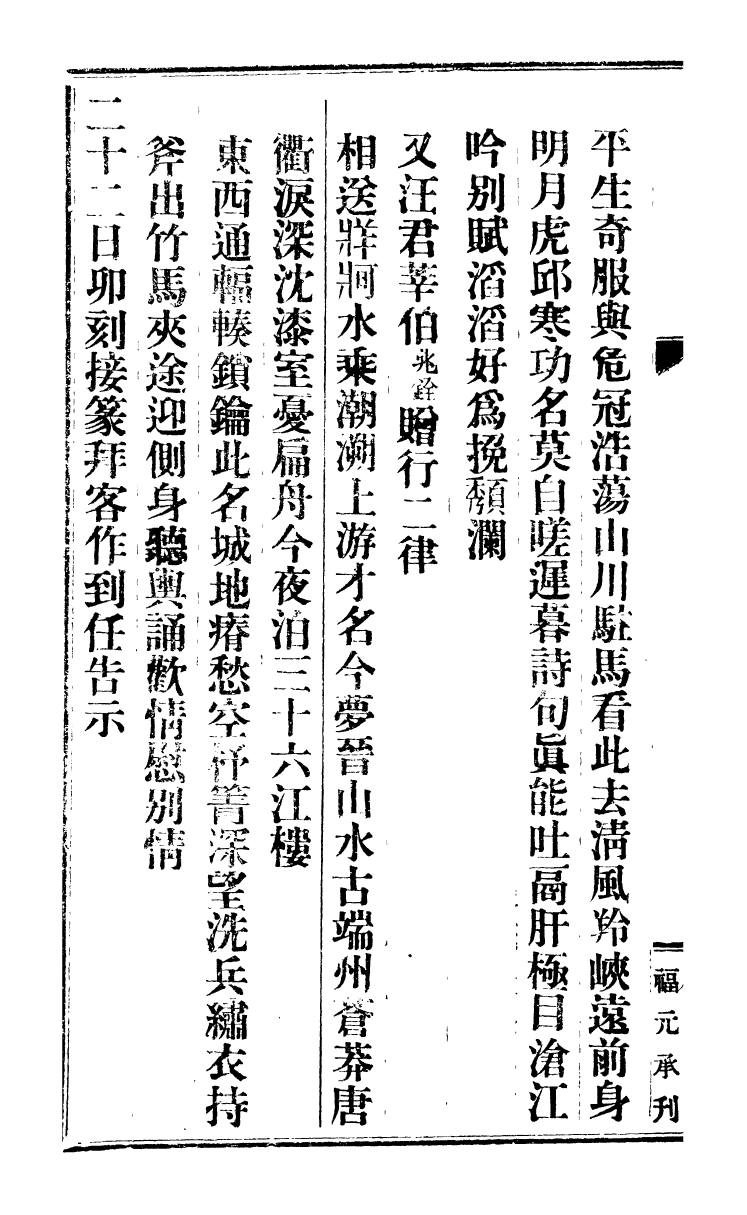 平生奇服與危冠浩蕩山川駐馬看此去清風羚峽遠前身
明月虎邱寒功名莫自嗟遲暮詩句眞能吐鬲肝極目滄江
吟别賦滔滔好爲挽頽瀾
又汪君莘伯兆銓贈行二律
相送牂牁水乘潮溯上游才名今夢晉山水古端州蒼莽唐
衢淚深沈漆室憂扁舟今夜泊三十六江樓
東西通輻輳鎖鑰此名城地瘠愁空杼箐深望洗兵繡衣持
斧出竹馬夾途迎側身聽輿誦歡情慰別情
二十二日卯刻接篆拜客作到任告示
福元承刊